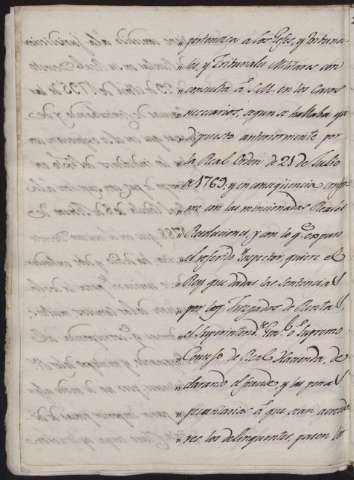 pertenece a los Gefes, y Tribuna-
les, y Tribunales Militares con
consulta á S.M. en los Casos
necesarios, segun se hallaba ya
dispuesto anteriormente por
la Real Orden de 21 de Julio
de 1769, y en consequencia confor-
me con las mencionadas Reales
Resoluciones, y con lo q.e expuso
el referido Inspector, quiere el
Rey que dadas las sentencias
por los Juzgados de Rentas
el Superintend.te Gen.l ó Supremo
Consejo de Real Hacienda, de-
clarando el fraude y las penas
pecuniarias á que sean acreedo-
res los delinquentes, pasen los